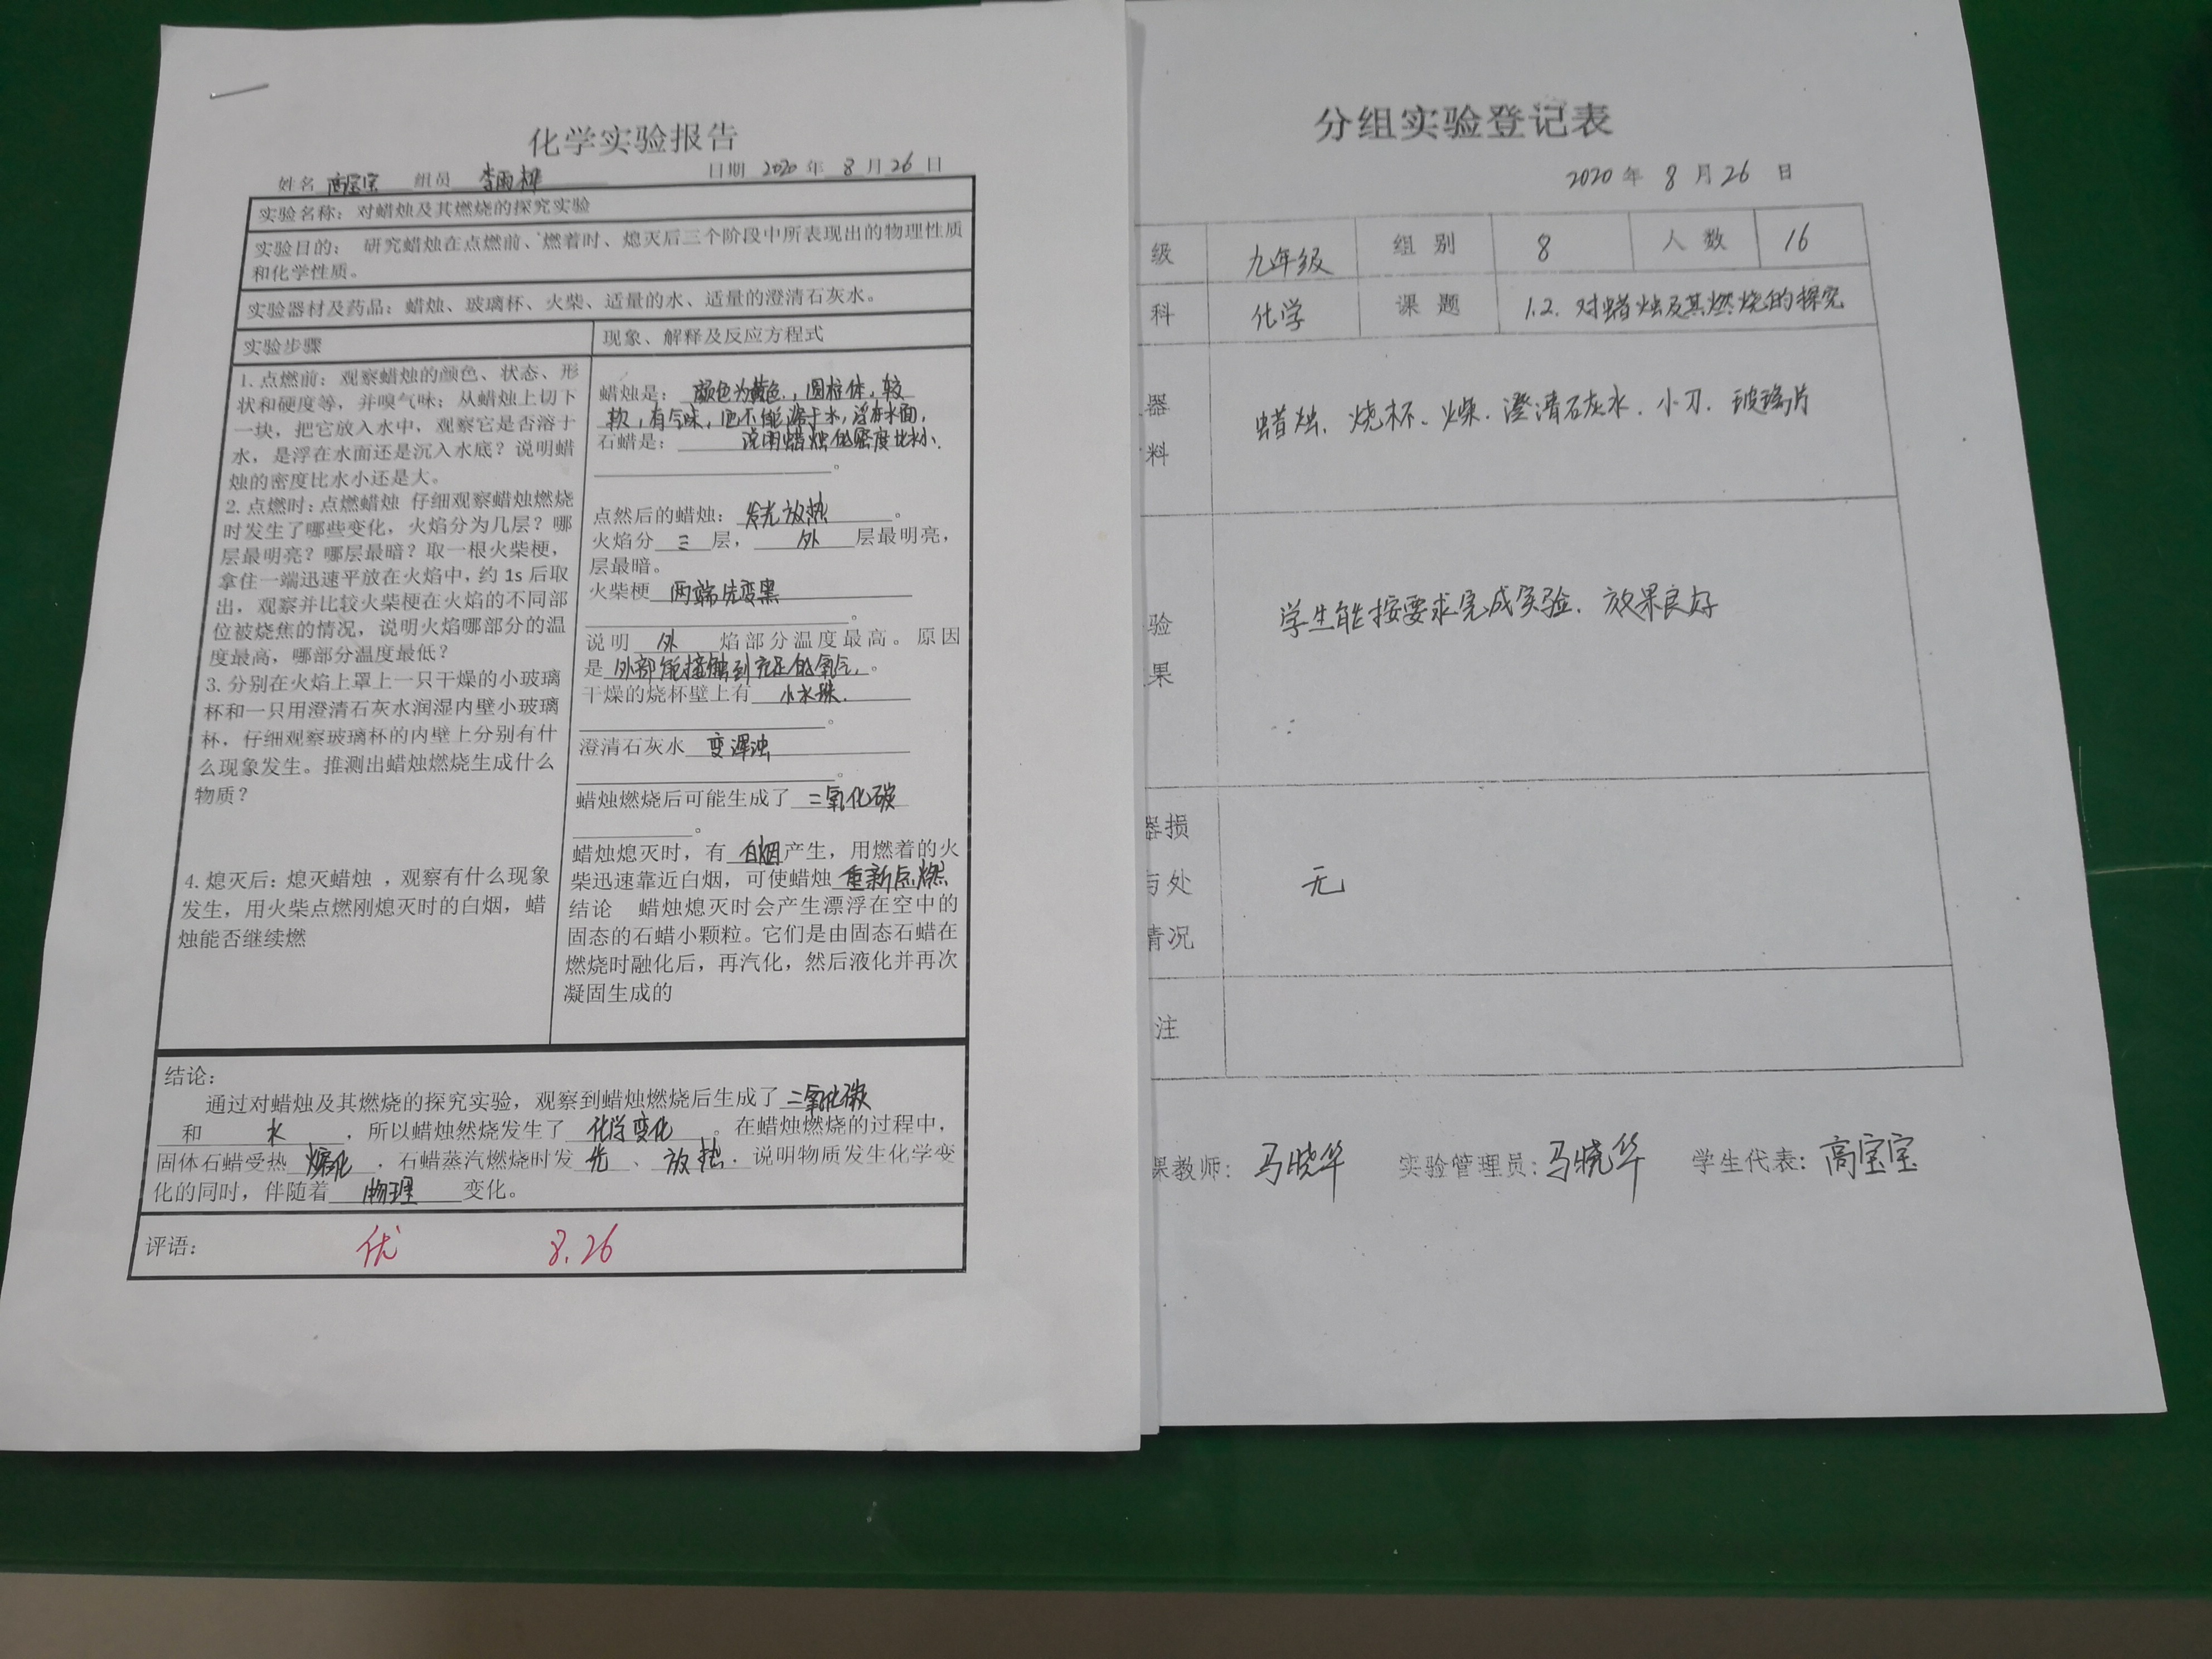 化学实验报告
姓名 高宝宝 组员 李雨 日期 2020 年 8 月 26 日
实验名称：对蜡烛及其燃烧的探究实验
实验目的： 研究蜡烛在点燃前、燃着时、熄灭后三个阶段中所表现出的物理性质
和化学性质。
实验器材及药品：蜡烛、玻璃杯、火柴、适量的水、适量的澄清石灰水。
实验步骤
现象、解释及反应方程式
1. 点燃前：观察蜡烛的颜色、状态、形
状和硬度等，并嗅气味；从蜡烛上切下
一块，把它放入水中，观察它是否溶于
水，是浮在水面还是沉入水底？说明蜡
烛的密度比水小还是大。
2. 点燃时：点燃蜡烛 仔细观察蜡烛燃烧
时发生了哪些变化，火焰分为几层？哪
层最明亮？哪层最暗？取一根火柴梗，
拿住一端迅速平放在火焰中，约 1s 后取
出，观察并比较火柴梗在火焰的不同部
位被烧焦的情况，说明火焰哪部分的温
度最高，哪部分温度最低？
3. 分别在火焰上罩上一只干燥的小玻璃
杯和一只用澄清石灰水润湿内壁小玻璃
杯，仔细观察玻璃杯的内壁上分别有什
么现象发生。推测出蜡烛燃烧生成什么
物质？
4. 熄灭后：熄灭蜡烛 ，观察有什么现象
发生，用火柴点燃刚熄灭时的白烟，蜡
烛能否继续燃
蜡烛是： 颜色为黄色，圆柱体，较
软，有气味，不能溶于水，浮在水面，
石蜡是： 说明蜡烛的密度比水小.
。
点然后的蜡烛： 发光放热 。
火焰分 三 层， 外 层最明亮，
层最暗。
火柴梗 两端先变黑
。
说明 外 焰部分温度最高。原因
是 外部能接触到充足的氧气. 。
干燥的烧杯壁上有 小水珠.
。
澄清石灰水 变浑浊
。
蜡烛燃烧后可能生成了 二氧化碳
。
蜡烛熄灭时，有 白烟 产生，用燃着的火
柴迅速靠近白烟，可使蜡烛 重新点燃
结论 蜡烛熄灭时会产生漂浮在空中的
固态的石蜡小颗粒。它们是由固态石蜡在
燃烧时融化后，再汽化，然后液化并再次
凝固生成的
结论：
通过对蜡烛及其燃烧的探究实验，观察到蜡烛燃烧后生成了 二氧化碳
和 水 ，所以蜡烛燃烧发生了 化学变化 。在蜡烛燃烧的过程中，
固体石蜡受热 熔化 ，石蜡蒸汽燃烧时发 光 、 放热 . 说明物质发生化学变
化的同时，伴随着 物理 变化。
评语： 优 8.26
分组实验登记表
2020 年 8 月 26 日
级 九年级 组别 8 人数 16
科 化学 课题 1.2. 对蜡烛及其燃烧的探究
器
料
蜡烛. 烧杯. 澄清石灰水. 小刀. 玻璃片
验
果
学生能按要求完成实验. 效果良好
器损
与处
情况
无
注
果教师: 马晓华 实验管理员: 马晓华 学生代表: 高宝宝